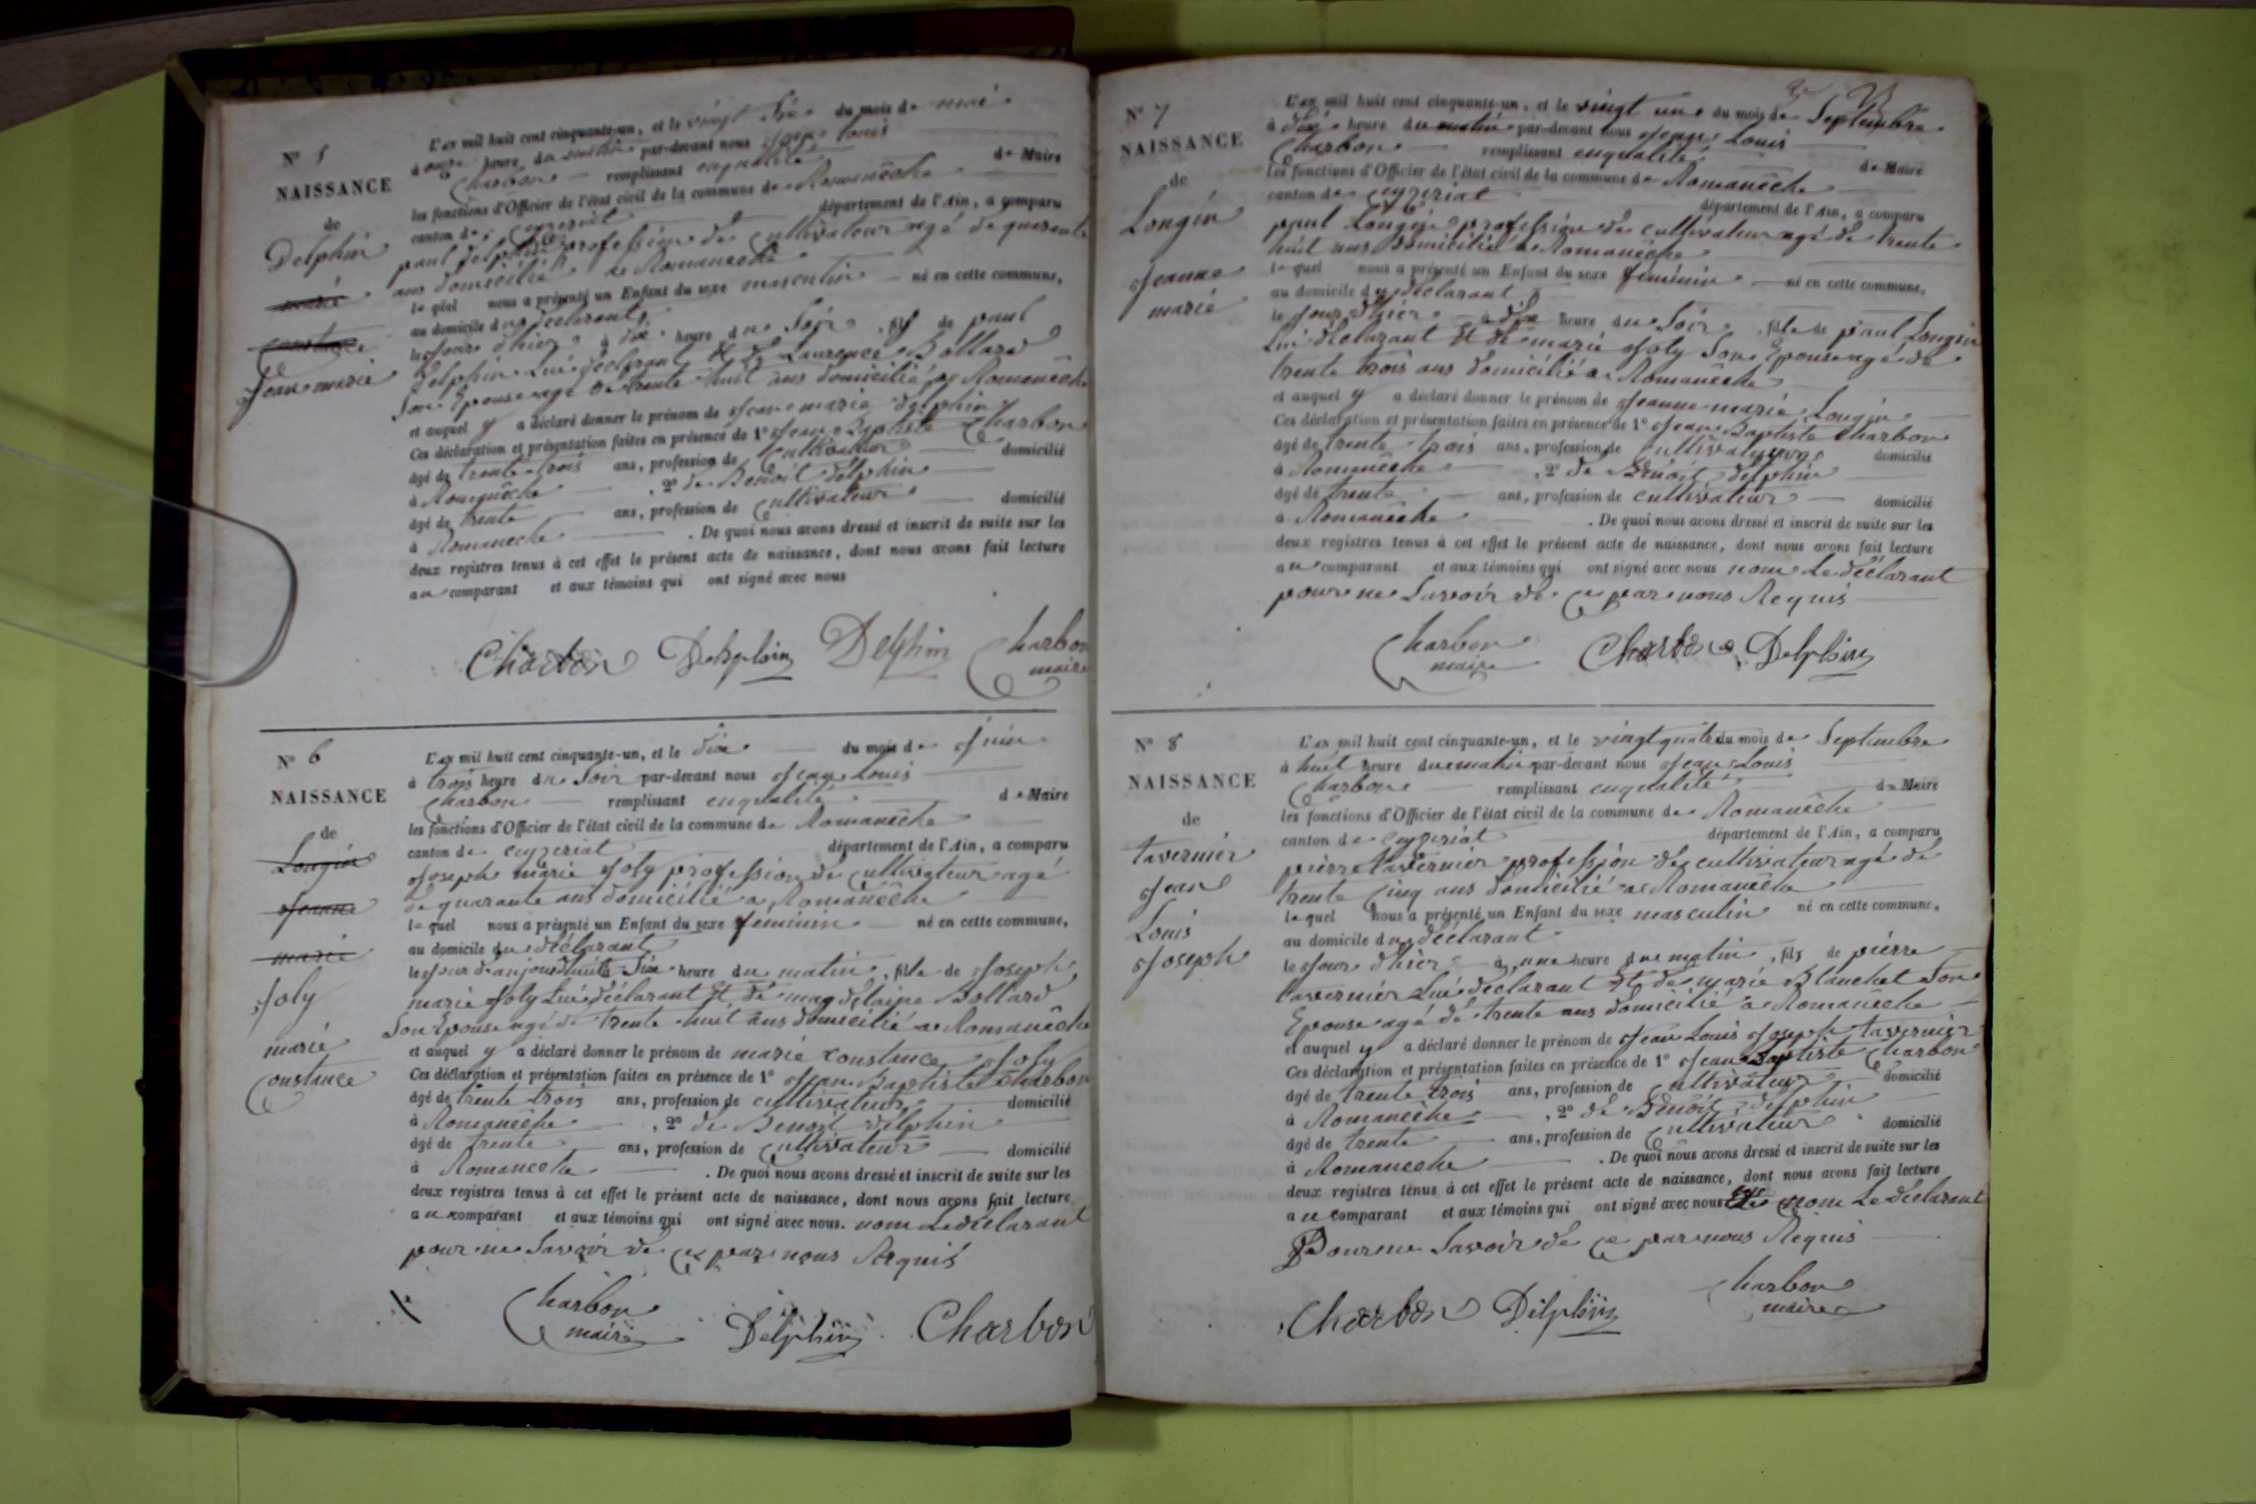 N° 5
NAISSANCE
de
Delphin
marie
constance
Jean marie
L'an mil huit cent cinquante-un, et le vingt six du mois de mai
à onze heure du matin par-devant nous Jean Louis
Charbon remplissant enqualité de Maire
les fonctions d'Officier de l'état civil de la commune de Romanêche
canton de ceyzeriat département de l'Ain, a comparu
paul Delphin profession de cultivateur agé de quarante
ans domicilié a Romanêche
le quel nous a présenté un Enfant du sexe masculin né en cette commune,
au domicile du déclarant
le Jour d'hier à dix heure du Soir, fils de paul
Delphin Lui déclarant Et de Laurence Bollard
Son Epouse agé de trente huit ans domicilié a Romanêche
et auquel y a déclaré donner le prénom de Jean marie delphin
Ces déclaration et présentation faites en présence de 1° Jean Baptiste Charbon
âgé de trente trois ans, profession de Cultivateur domicilié
à Romanêche, 2° de Benoit Delphin
âgé de trente ans, profession de Cultivateur domicilié
à Romanêche. De quoi nous avons dressé et inscrit de suite sur les
deux registres tenus à cet effet le présent acte de naissance, dont nous avons fait lecture
au comparant et aux témoins qui ont signé avec nous
Charbon Delphin Delphin Charbon
maire
N° 6
NAISSANCE
de
Longin
Jeanne
marie
Joly
marie
Constance
L'an mil huit cent cinquante-un, et le dix du mois de Juin
à trois heure du Soir par-devant nous Jean Louis
Charbon remplissant enqualité de Maire
les fonctions d'Officier de l'état civil de la commune de Romanêche
canton de ceyzeriat département de l'Ain, a comparu
Joseph marie Joly profession de Cultivateur agé
de quarante ans domicilié a Romanêche
le quel nous a présenté un Enfant du sexe féminin né en cette commune,
au domicile du déclarant
le Jour d'aujourd'hui à Six heure du matin, fille de Joseph
marie Joly Lui déclarant Et de magdelaine Bollard
Son Epouse agé de trente huit ans domicilié a Romanêche
et auquel y a déclaré donner le prénom de marie constance Joly
Ces déclaration et présentation faites en présence de 1° Jean Baptiste Charbon
âgé de trente trois ans, profession de cultivateur domicilié
à Romanêche, 2° de Benoit delphin
âgé de trente ans, profession de Cultivateur domicilié
à Romanêche. De quoi nous avons dressé et inscrit de suite sur les
deux registres tenus à cet effet le présent acte de naissance, dont nous avons fait lecture
au comparant et aux témoins qui ont signé avec nous. nom Le déclarant
pour ne Savoir de ce par nous Requis
Charbon
maire Delphin Charbon
N° 7
NAISSANCE
de
Longin
Jeanne
marie
L'an mil huit cent cinquante-un, et le vingt un du mois de Septembre
à dix heure du matin par-devant nous Jean Louis
Charbon remplissant enqualité de Maire
les fonctions d'Officier de l'état civil de la commune de Romanêche
canton de ceyzeriat département de l'Ain, a comparu
paul Longin profession de cultivateur agé de trente
huit ans domicilié a Romanêche
le quel nous a présenté un Enfant du sexe féminin né en cette commune,
au domicile du déclarant
le Jour d'hier à dix heure du Soir, fille de paul Longin
Lui déclarant Et de marie Joly Son Epouse agé de
trente trois ans domicilié a Romanêche
et auquel y a déclaré donner le prénom de Jeanne marie Longin
Ces déclaration et présentation faites en présence de 1° Jean Baptiste Charbon
âgé de trente trois ans, profession de Cultivateur domicilié
à Romanêche, 2° de Benoit delphin
âgé de trente ans, profession de cultivateur domicilié
à Romanêche. De quoi nous avons dressé et inscrit de suite sur les
deux registres tenus à cet effet le présent acte de naissance, dont nous avons fait lecture
au comparant et aux témoins qui ont signé avec nous nom Le déclarant
pour ne Savoir de ce par nous Requis
Charbon
maire Charbon Delphin
N° 8
NAISSANCE
de
tavernier
Jean
Louis
Joseph
L'an mil huit cent cinquante-un, et le vingt quatre du mois de Septembre
à huit heure du matin par-devant nous Jean Louis
Charbon remplissant enqualité de Maire
les fonctions d'Officier de l'état civil de la commune de Romanêche
canton de Ceyzeriat département de l'Ain, a comparu
pierre tavernier profession de cultivateur agé de
trente Cinq ans domicilié a Romanêche
le quel nous a présenté un Enfant du sexe masculin né en cette commune,
au domicile du déclarant
le Jour d'hier à une heure du matin, fils de pierre
tavernier Lui déclarant Et de marie Blanchet Son
Epouse agé de trente ans domicilié a Romanêche
et auquel y a déclaré donner le prénom de Jean Louis Joseph tavernier
Ces déclaration et présentation faites en présence de 1° Jean Baptiste Charbon
âgé de trente trois ans, profession de Cultivateur domicilié
à Romanêche, 2° de Benoit delphin
âgé de trente ans, profession de Cultivateur domicilié
à Romanêche. De quoi nous avons dressé et inscrit de suite sur les
deux registres tenus à cet effet le présent acte de naissance, dont nous avons fait lecture
au comparant et aux témoins qui ont signé avec nous nom Le déclarant
Pour ne Savoir de ce par nous Requis
Charbon Delphin Charbon
maire